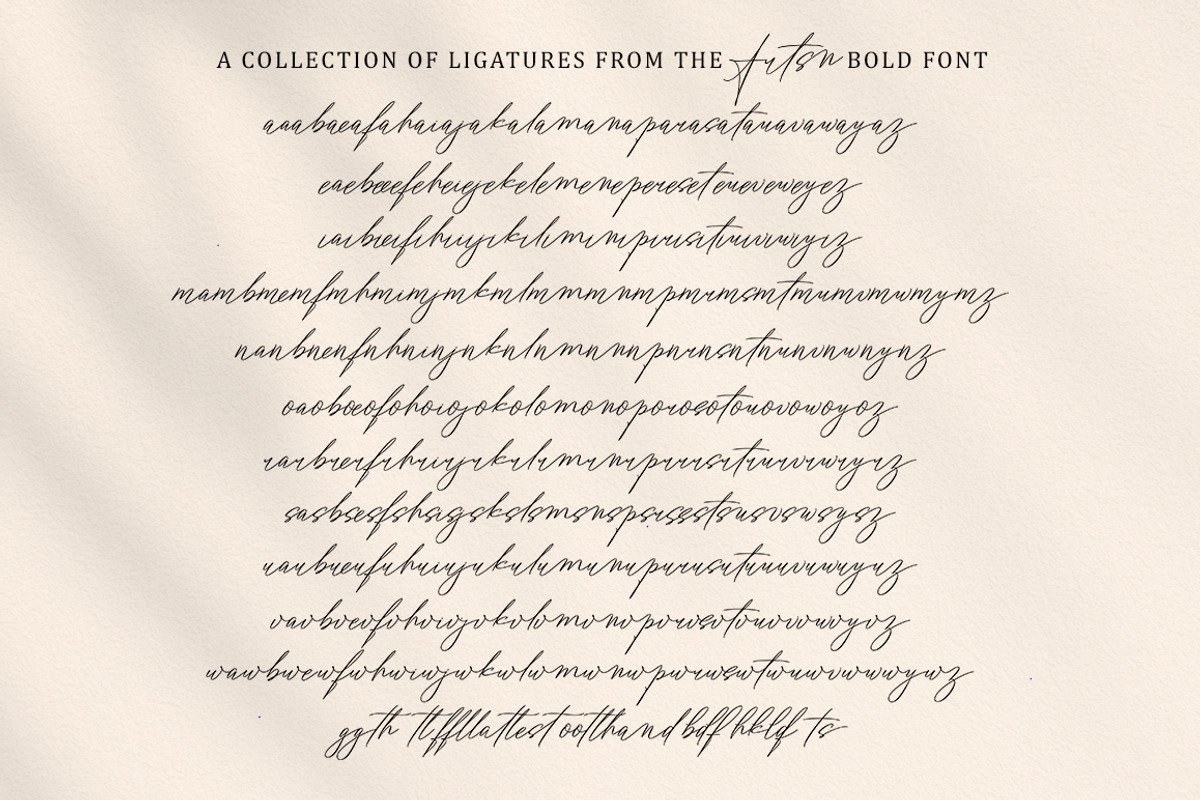 A COLLECTION OF LIGATURES FROM THE Artsn BOLD FONT
aaabaeafahaiajakalamanaparasatauavawayaz
eaebeeefeheiejekelemenepereset eueveweyez
iaibieifihiiijikiliminipirisitiuiviwiyiz
mambmemfmhmimjmkmlmmmnmpmrmsmtmumvmwmymz
nanbnenfnhninjnknlnmnnnpnrnsntnunvnwnynz
oaoboeofohoiojokolomonoporosotouovowoyoz
rarbrerfrhrirjrkrlrmrnrprrrsrtrurvrwryrz
sasbsesfshsisjskslsmsnspsrssstsusvswsysz
uaubueufuhuiujukulumunupurusutuuuvuwuyuz
vavbvevfvhvivjvkvlvmvnvpvrvsvtvuvvvwvyvz
wawbwewfwhwiwjwkwlwmwnwpwrwswtwuwvwwwywz
ggth bdf ts